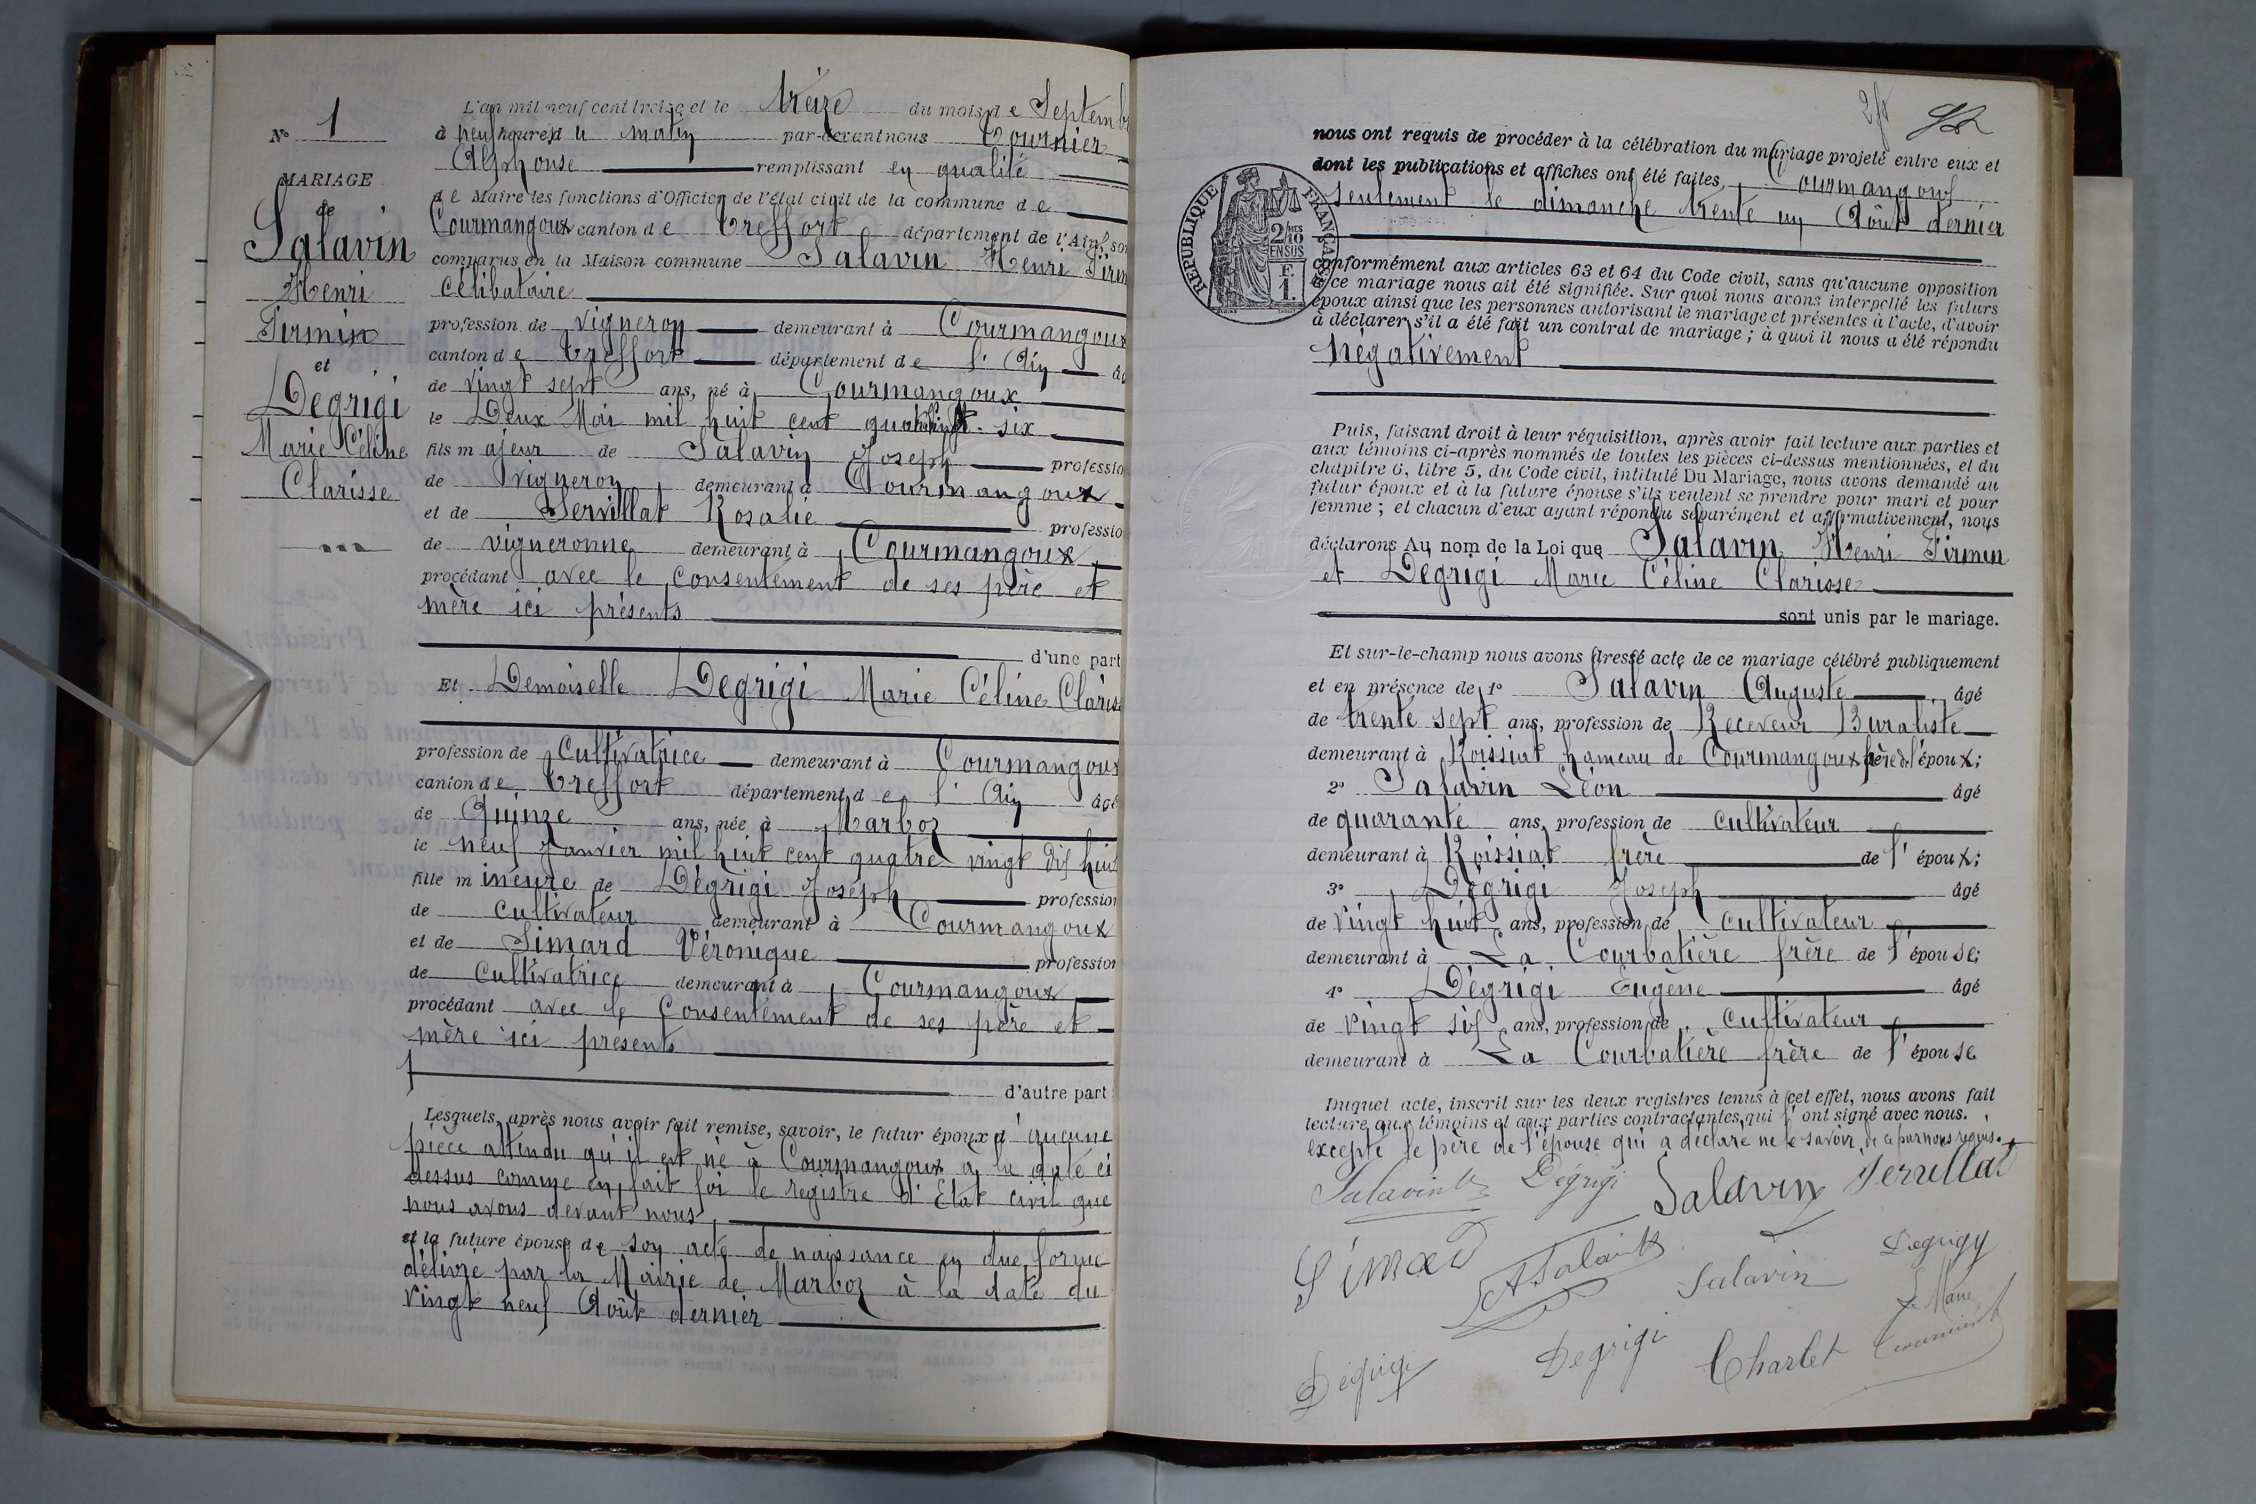 N° 1
MARIAGE
de
Salavin
Henri
Firmin
et
Degrigi
Marie Céline
Clarisse
L'an mil neuf cent treize et le treize du mois de Septemb
à neuf heures du matin par-devant nous Tournier
Alphonse remplissant en qualité
de Maire les fonctions d'Officier de l'état civil de la commune de
Courmangoux canton de Treffort département de l'Ain, son
comparus en la Maison commune Salavin Henri Firm
célibataire
profession de vigneron demeurant à Courmangoux
canton de Treffort département de l'Ain âg
de vingt sept ans, né à Courmangoux
le Deux Mai mil huit cent quatre vingt six
fils majeur de Salavin Joseph professio
de vigneron demeurant à Courmangoux
et de Servillat Rosalie professio
de vigneronne demeurant à Courmangoux
procédant avec le consentement de ses père et
mère ici présents
d'une part
Et Demoiselle Degrigi Marie Céline Clariss
profession de cultivatrice demeurant à Courmangoux
canton de Treffort département de l'Ain âgé
de Quinze ans, née à Marboz
le neuf Janvier mil huit cent quatre vingt dix huit
fille mineure de Dégrigi Joseph profession
de cultivateur demeurant à Courmangoux
et de Simard Véronique profession
de cultivatrice demeurant à Courmangoux
procédant avec le consentement de ses père et
mère ici présents
d'autre part
Lesquels, après nous avoir fait remise, savoir, le futur époux d'aucune
pièce attendu qu'il est né à Courmangoux à la date ci
dessus comme en fait foi le registre d'Etat civil que
nous avons devant nous,
et la future épouse de son acte de naissance en due forme
délivré par la Mairie de Marboz à la date du
vingt neuf Août dernier
nous ont requis de procéder à la célébration du mariage projeté entre eux et
dont les publications et affiches ont été faites, Courmangoux
seulement le dimanche trente un Août dernier
REPUBLIQUE FRANÇAISE
2/10 EN SUS
F.
1.
conformément aux articles 63 et 64 du Code civil, sans qu'aucune opposition
à ce mariage nous ait été signifiée. Sur quoi nous avons interpellé les futurs
époux ainsi que les personnes autorisant le mariage et présentes à l'acte, d'avoir
à déclarer s'il a été fait un contrat de mariage ; à quoi il nous a été répondu
négativement
Puis, faisant droit à leur réquisition, après avoir fait lecture aux parties et
aux témoins ci-après nommés de toutes les pièces ci-dessus mentionnées, et du
chapitre 6, titre 5, du Code civil, intitulé Du Mariage, nous avons demandé au
futur époux et à la future épouse s'ils veulent se prendre pour mari et pour
femme ; et chacun d'eux ayant répondu séparément et affirmativement, nous
déclarons Au nom de la Loi que Salavin Henri Firmin
et Dégrigi Marie Céline Clarisse
sont unis par le mariage.
Et sur-le-champ nous avons dressé acte de ce mariage célébré publiquement
et en présence de 1° Salavin Auguste âgé
de trente sept ans, profession de Receveur Buraliste
demeurant à Roissiat hameau de Courmangoux frère de l'époux;
2° Salavin Léon âgé
de quarante ans, profession de cultivateur
demeurant à Roissiat frère de l'époux;
3° Dégrigi Joseph âgé
de vingt huit ans, profession de cultivateur
demeurant à La Courbatière frère de l'épouse;
4° Dégrigi Eugène âgé
de vingt six ans, profession de cultivateur
demeurant à La Courbatière frère de l'épouse
Duquel acte, inscrit sur les deux registres tenus à cet effet, nous avons fait
lecture aux témoins et aux parties contractantes, qui l'ont signé avec nous.
excepté le père de l'épouse qui a déclaré ne le savoir, de ce par nous requis.
Salavin Dégrigi Salavin Servillat
Simard A Salavin Salavin Degrigy
Le Maire
Dégrigi Degrigi Charlet Tournier